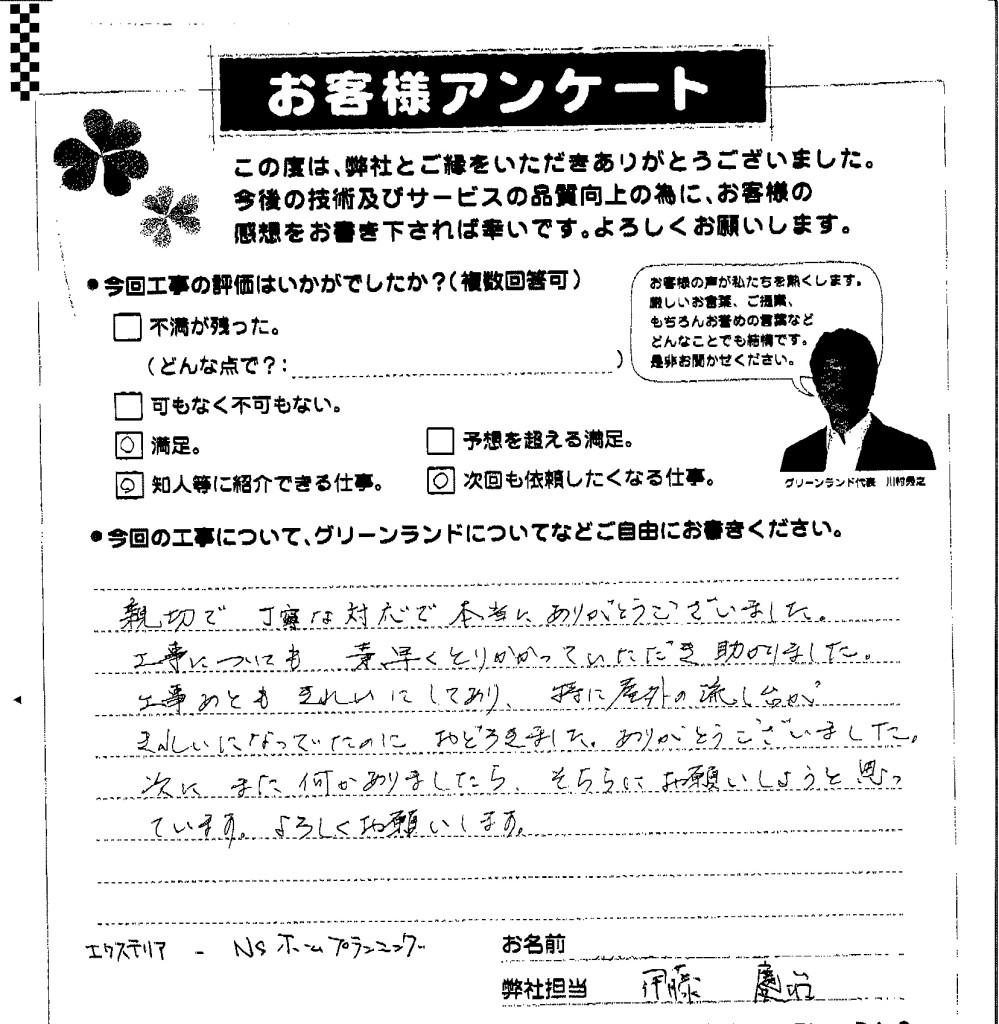 お客様アンケート
この度は、弊社とご縁をいただきありがとうございました。
今後の技術及びサービスの品質向上の為に、お客様の
感想をお書き下されば幸いです。よろしくお願いします。
●今回工事の評価はいかがでしたか？(複数回答可)
お客様の声が私たちを熱くします。
厳しいお言葉、ご提案、
もちろんお誉めの言葉など
どんなことでも結構です。
是非お聞かせください。
不満が残った。
(どんな点で？: )
可もなく不可もない。
満足。 予想を超える満足。
知人等に紹介できる仕事。 次回も依頼したくなる仕事。
グリーンランド代表 川村
●今回の工事について、グリーンランドについてなどご自由にお書きください。
親切で 丁寧な対応で 本当に ありがとうございました。
工事についても 素早くとりかかっていただき助かりました。
工事あとも きれいにしており、特に屋外の流し台が
きれいになっていたのに おどろきました。ありがとうございました。
次に また何かありましたら、そちらにお願いしようと思っ
ています。よろしくお願いします。
エクステリア - NSホームプランニング
お名前
弊社担当 伊藤